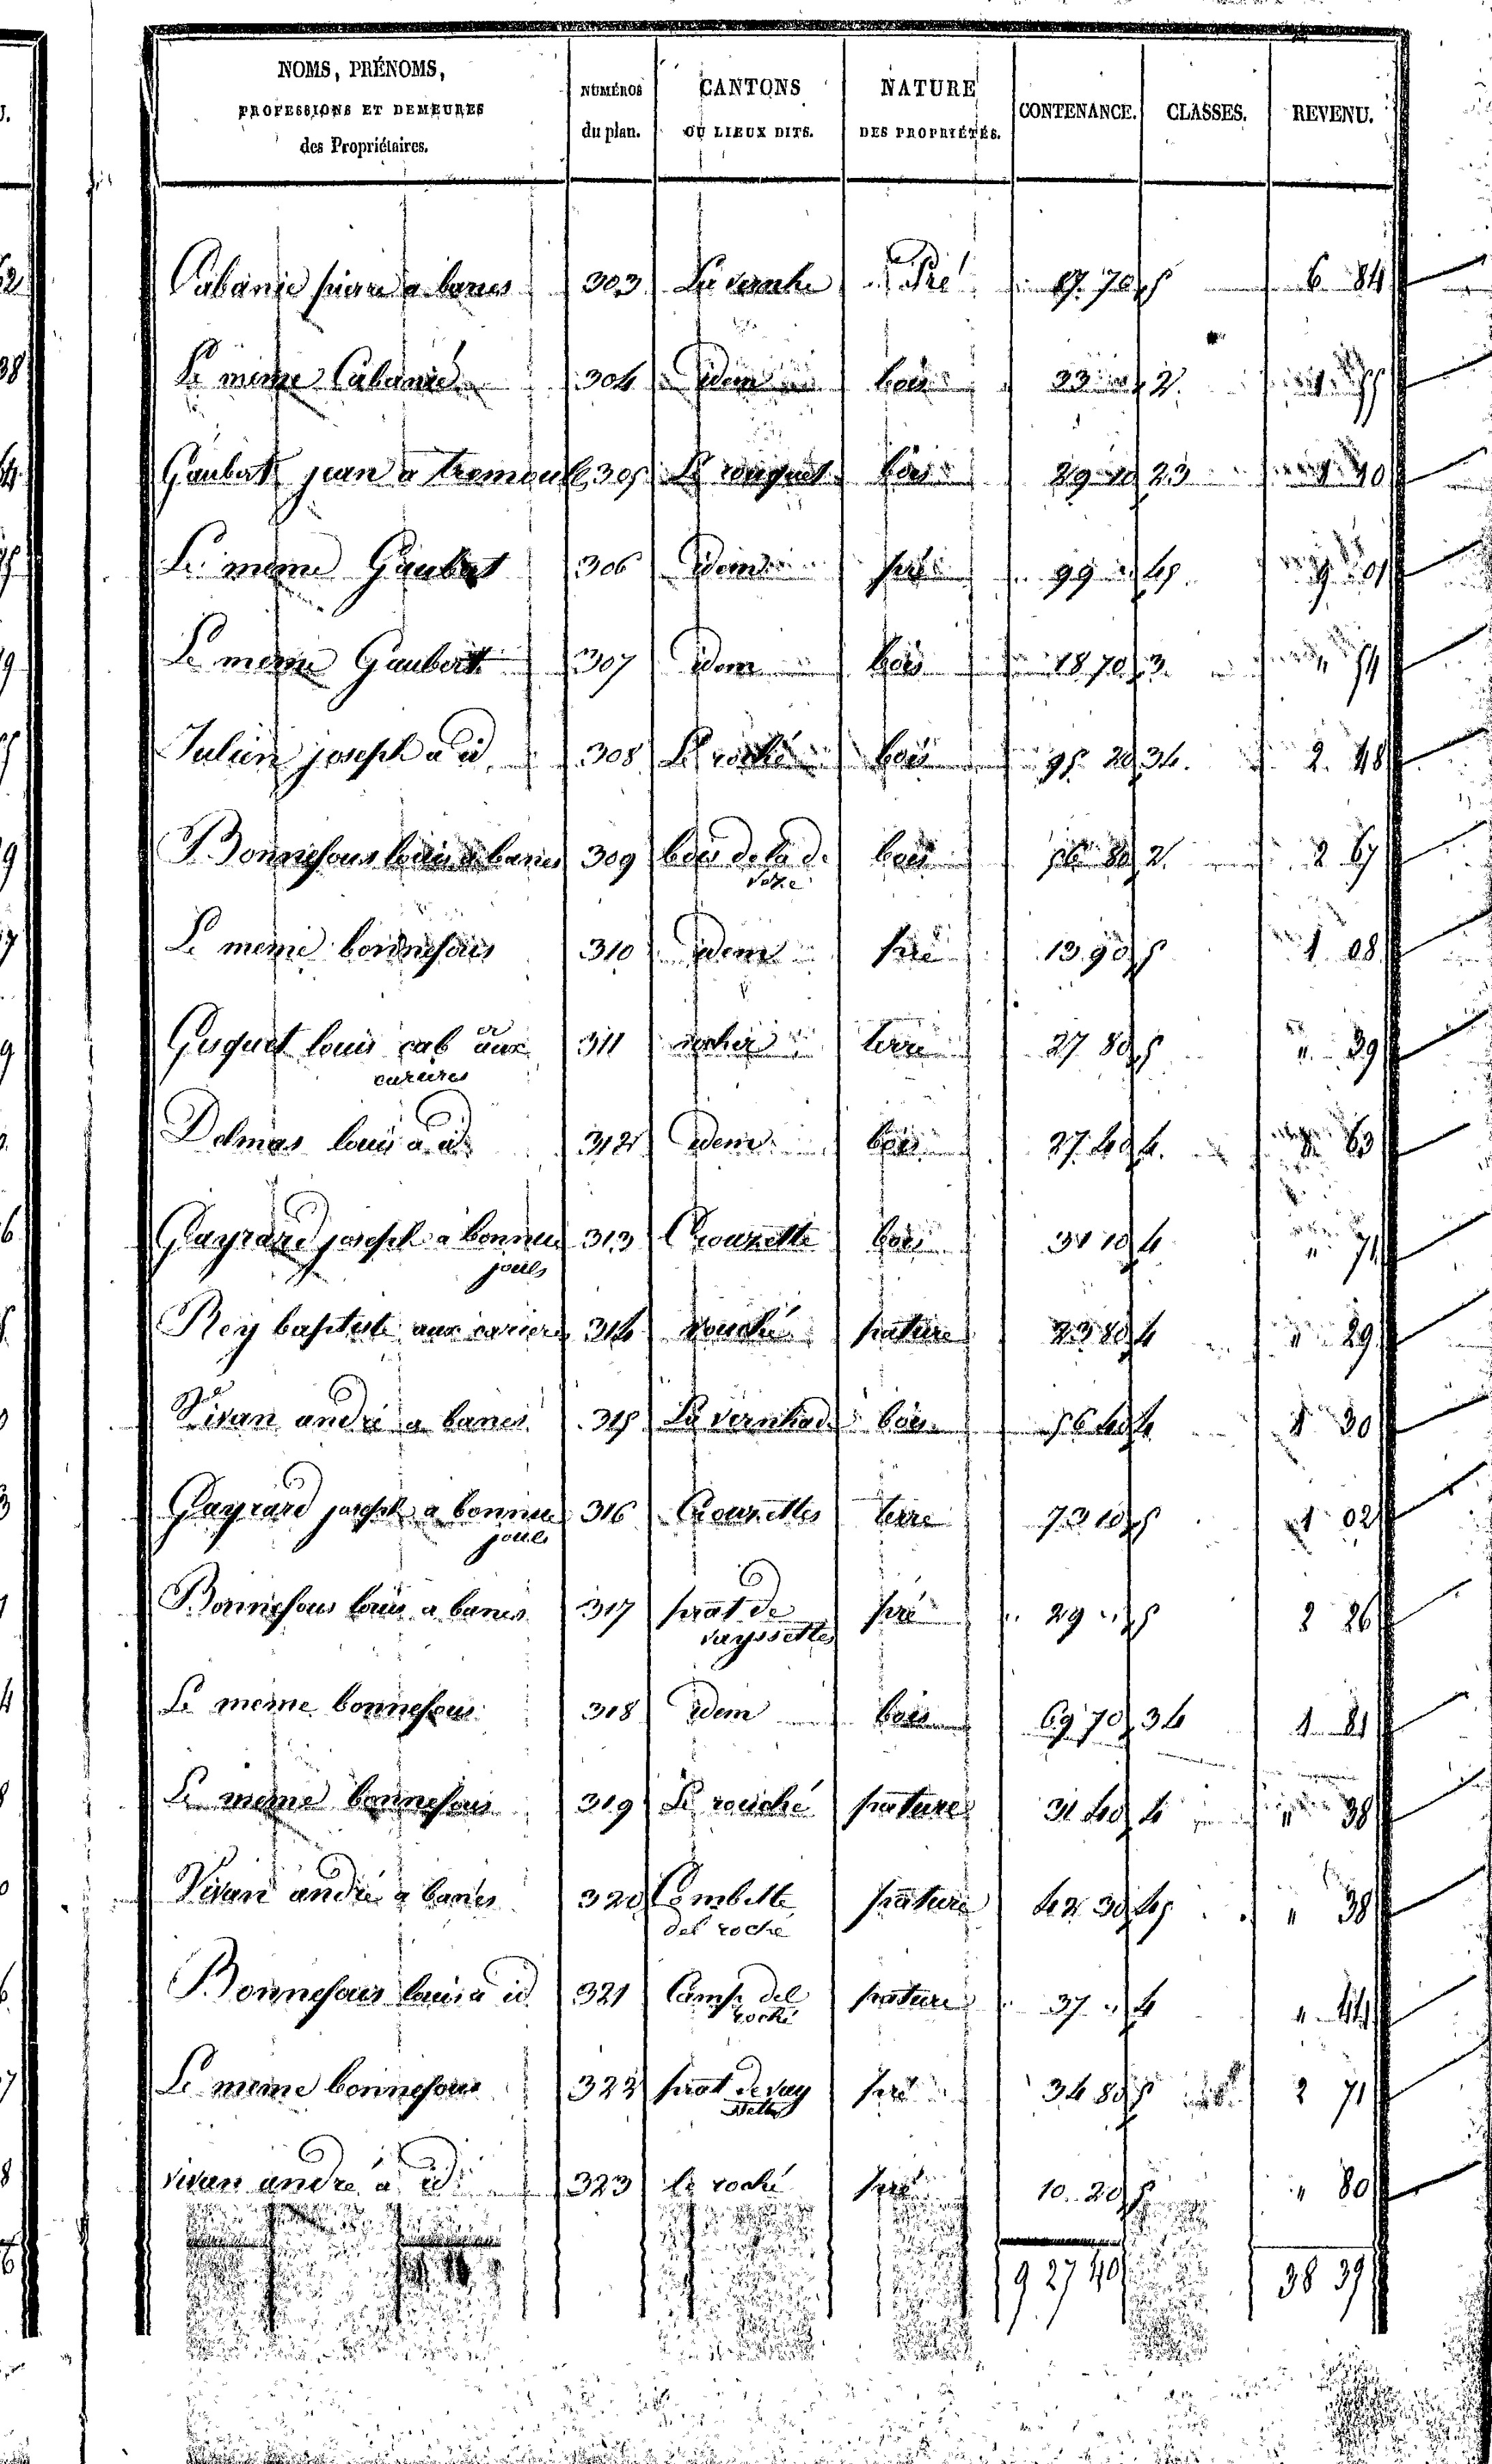 NOMS, PRÉNOMS,
PROFESSIONS ET DEMEURES
des Propriétaires.
NUMÉROS
du plan.
CANTONS
OU LIEUX DITS.
NATURE
DES PROPRIÉTÉS.
CONTENANCE.
CLASSES.
REVENU.
Cabanié pierre a banes 303 La vernhe Pré 87 70 5 6 84
Le meme Cabanié 304 idem bois 33 " 2 1 55
Gaubert jean a tremouls 305 Le rouquet bois 29 10 23 1 10
Le meme Gaubert 306 idem pré 99 " 45 9 01
Le meme Gaubert 307 idem bois 18 70 3 " 54
Julien joseph a id 308 Le roché bois 95 20 34 2 48
Bonnefous louis a banes 309 bois de la de bois 56 80 2 2 67
veze
Le meme bonnefous 310 idem pré 13 90 5 1 08
Gisquet louis cab er aux 311 rocher terre 27 80 5 " 39
carieres
Delmas louis a id 312 idem bois 27 40 4 " 63
Gayrard joseph a bonne 313 Crouzette bois 31 10 4 " 71
jouls
Rey baptiste aux carieres 314 rouché pature 23 80 4 " 29
Vivan andré a banes 315 La vernhade bois 56 40 4 1 30
Gayrard joseph a bonne 316 Crouzettes terre 73 10 5 1 02
jouls
Bonnefous louis a banes 317 prat de pré 29 " 5 2 26
vayssettes
Le meme bonnefous 318 idem bois 69 70 34 1 81
Le meme bonnefous 319 Le rouché pature 31 40 4 " 38
Vivan andré a banes 320 Combette pature 42 30 45 " 38
del roché
Bonnefous louis a id 321 Camp del pature 37 " 4 " 44
roché
Le meme bonnefous 322 prat de vay pré 34 80 5 2 71
ssettes
vivan andré a id 323 le roché pré 10 20 5 " 80
9 27 40 38 39